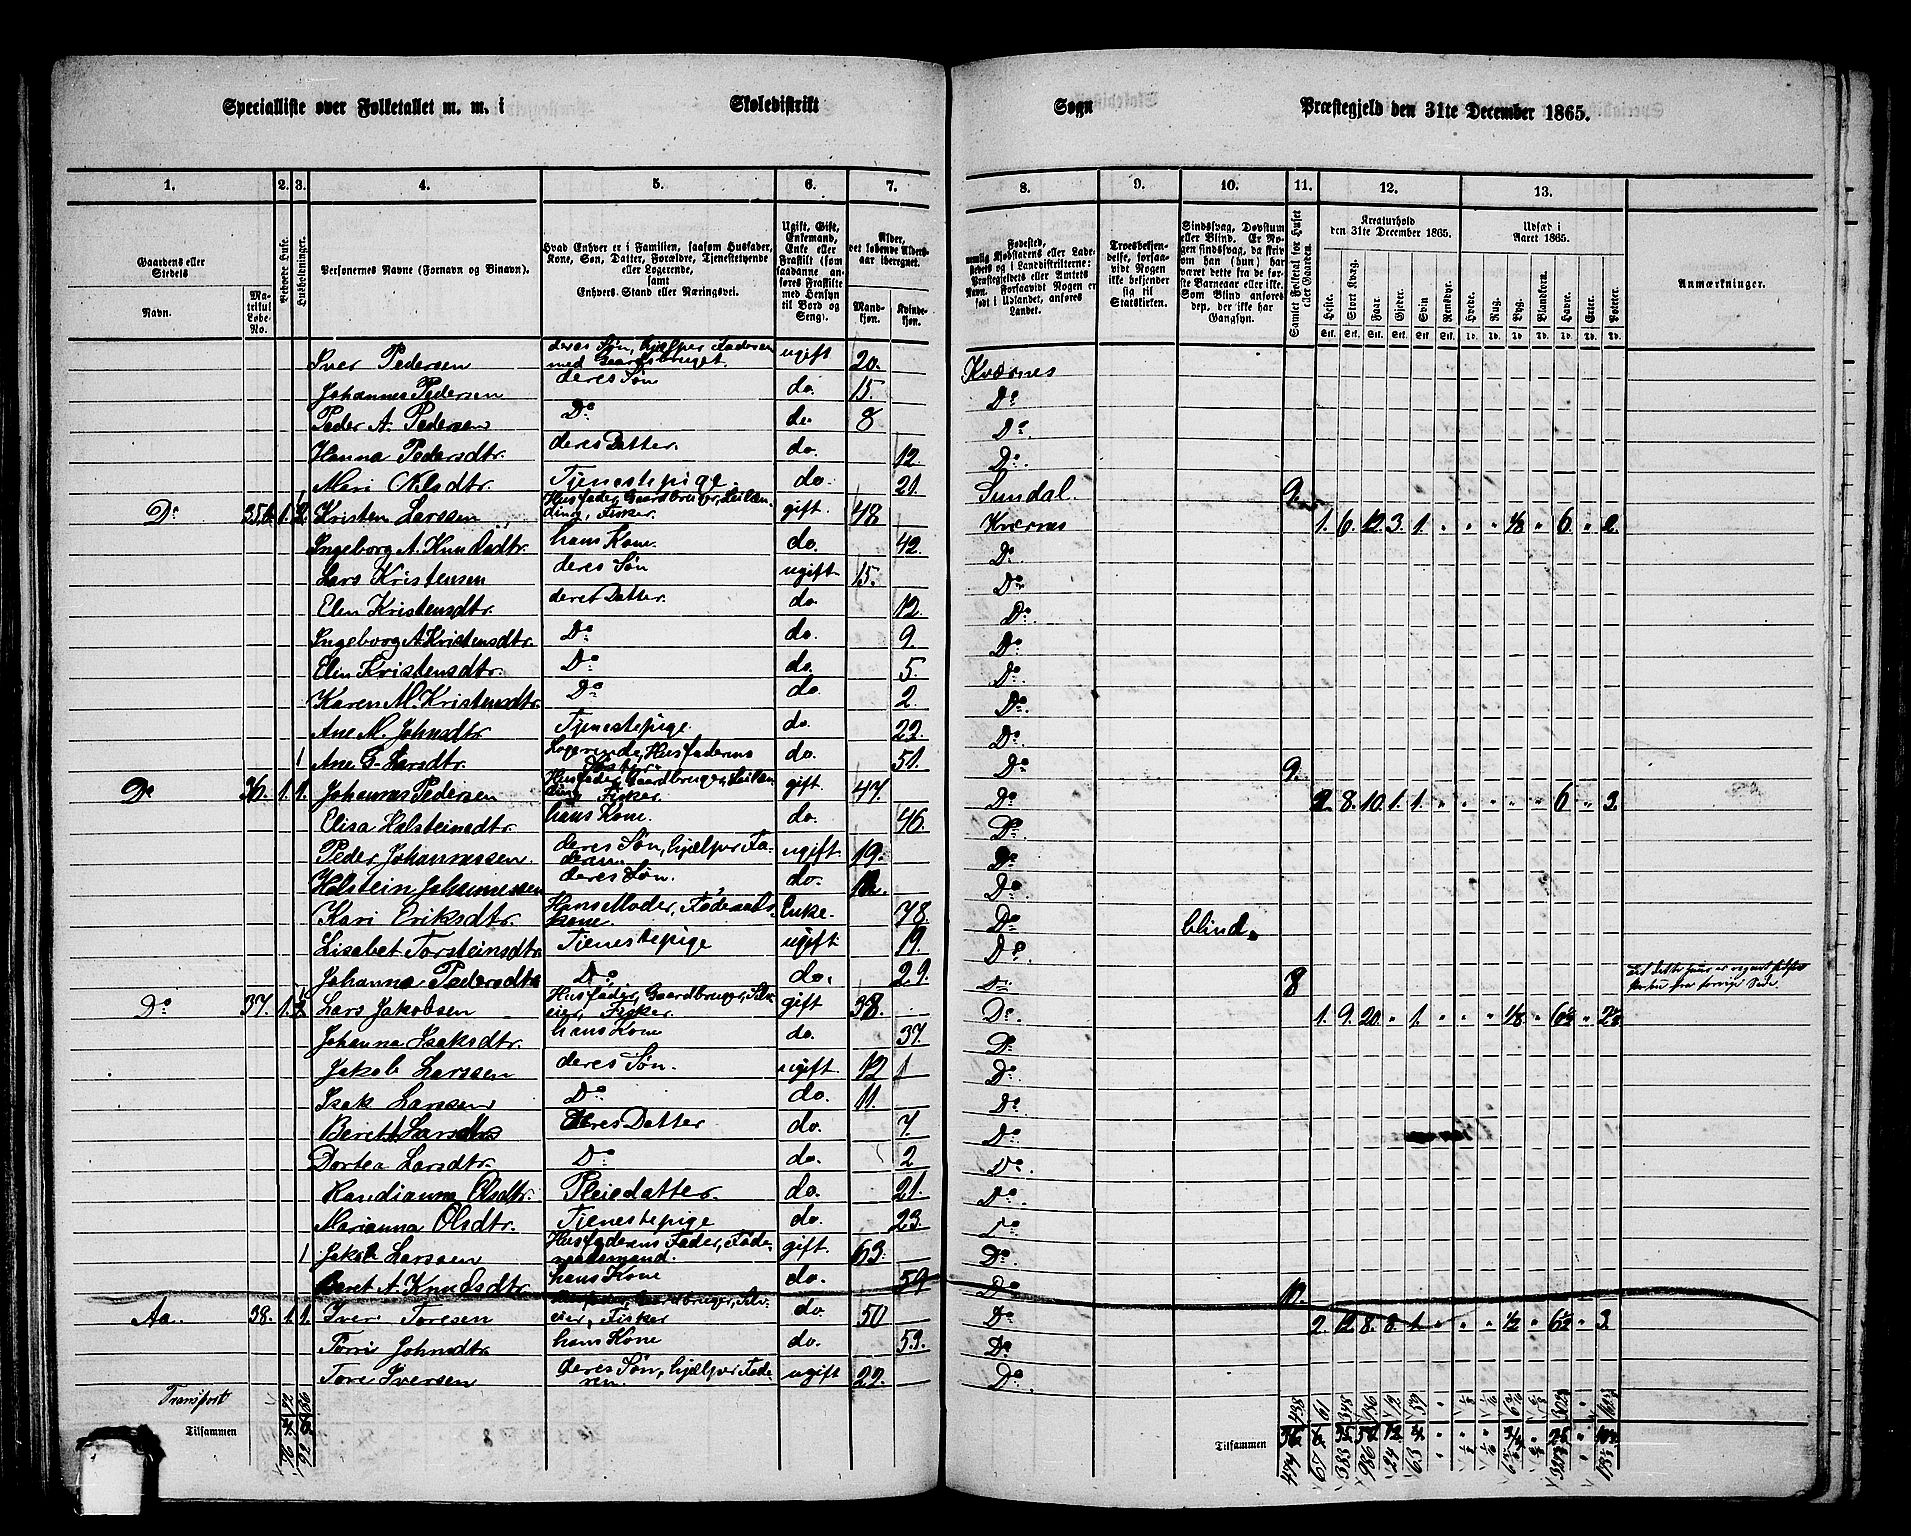 Specialliste over Folketallet m. m. i Skoledistrikt Sogn Præstegjeld den 31te December 1865.
1. 2. 3. 4. 5. 6. 7. 8. 9. 10. 11. 12. 13.
Gaardens eller Stedets
Navn.
Matrikul Løbe-No.
Beboede Huse.
Husholdninger.
Personernes Navne (Fornavn og Binavn).
Hvad Enhver er i Familien, saasom Husfader, Kone, Søn, Datter, Forældre, Tjenestetyende eller Logerende, samt Enhvers Stand eller Næringsvei.
Ugift, Gift, Enkemand, Enke eller Fraskilt (som saadanne anføres Fraskilte med Hensyn til Bord og Seng).
Alder, det løbende Aldersaar iberegnet.
Mandkjøn. Kvindekjøn.
Fødested,
Troesbekjendelse, forsaavidt Nogen ikke bekjender sig til Statskirken.
Sindssvag, Døvstum eller Blind. Er Nogen sindssvag, da skrives om han (hun) har været dette fra de første Barneaar eller ikke. Som Blind anføres dep, der ikke har Gangsyn.
Samlet Folketal for Huset eller Gaarden.
Kreaturhold den 31te December 1865.
Heste. Stort Kvæg. Faar. Gjeder. Svin Rensdyr.
Udsæd i Aaret 1865.
Hvede. Rug. Byg. Blandkorn. Havre. Erter. Poteter.
Anmærkninger.
Iver Pedersen deres Søn, hjelper Faderen med Gaardsbruget. ugift 20. Kværnes
Johannes Pedersen deres Søn do. 15. Do
Peder A. Pedersen Do do. 8 Do
Hanna Pedersdtr. deres Datter. do. 12. Do
Mari Nilsdtr. Tjenestepige. do. 21. Sundal. 9.
Do 35b 1. Kristen Larssen Husfader, Gaardbruger, Leilænding, Fisker. gift. 48 Kværnes 1. 6. 12. 3. 1. " " " 1/8 " 6. " 2.
Ingeborg A. Knudsdtr. hans Kone. do. 42. Do
Lars Kristensen deres Søn ugift. 15. Do
Elen Kristensdtr. deres Datter. do. 12. Do
Ingeborg A. Kristensdtr. Do do. 9. Do
Elin Kristensdtr. Do do. 5. Do
Karen M. Kristensdtr. Do do. 2. Do
Ane M. Johnsdtr Tjenestepige. do. 22. Do
1 Ane G. Larsdtr. Logerende, Husfaderens Søster do. 51. Do 9.
Do 36. 1. 1. Johannes Pedersen Husfader, Gaardbruger, Leilænding Fisker. gift. 47. Do 2. 8. 10. 1. 1. " " " " " 6 " 3.
Elisa Halsteinsdtr. hans Kone. do. 46. Do
Peder Johannessen. deres Søn, hjelper Faderen. ugift. 19. Do
Halstein Johannessen deres Søn. do. Do
Kari Eriksdtr. Hans Moder, Føderaadskone. Enke. 78. Do blind.
Lisabet Torsteinsdtr Tienestepige ugift. 19. Do
Johanna Pedersdtr Do do. 29. Do 8
Do 37. 1. Lars Jakobsen Husfader, Gaardbruger, Selveier, Fisker. gift 38. Do 1. 9. 20. " 1. " " " 1/8 " 6½ " 2½
Johanna Isaksdtr. hans Kone do. 37. Do
Jakob Larssen deres Søn. ugift. 12 Do
Isak Larssen Do do. 11. Do
Beret Larsdtr deres Datter do. 7. Do
Dortea Larsdtr. Do do. 2 Do
Randianna Olsdtr. Pleiedatter. do. 21. Do
Marianna Olsdtr. Tienestepige do. 23. Do
1 Jakob Larssen Husfaderens Fader, Føderaadsmand. gift. 63. Do
Beret A. Knudsdtr. hans Kone do. 59 Do 11.
Aa. 38. 1. 1. Iver Toresen Husfader, Gaardbruger, Selveier, Fisker do. 50 Do 2. 12. 8. 8. 1. " " " 1/2 " 6½ " 3.
Torri Johnsdtr. hans Kone do. 53. Do
Tore Iversen deres Søn, hjelper Faderen. ugift 22. Do
Transport
Tilsammen Tilsammen